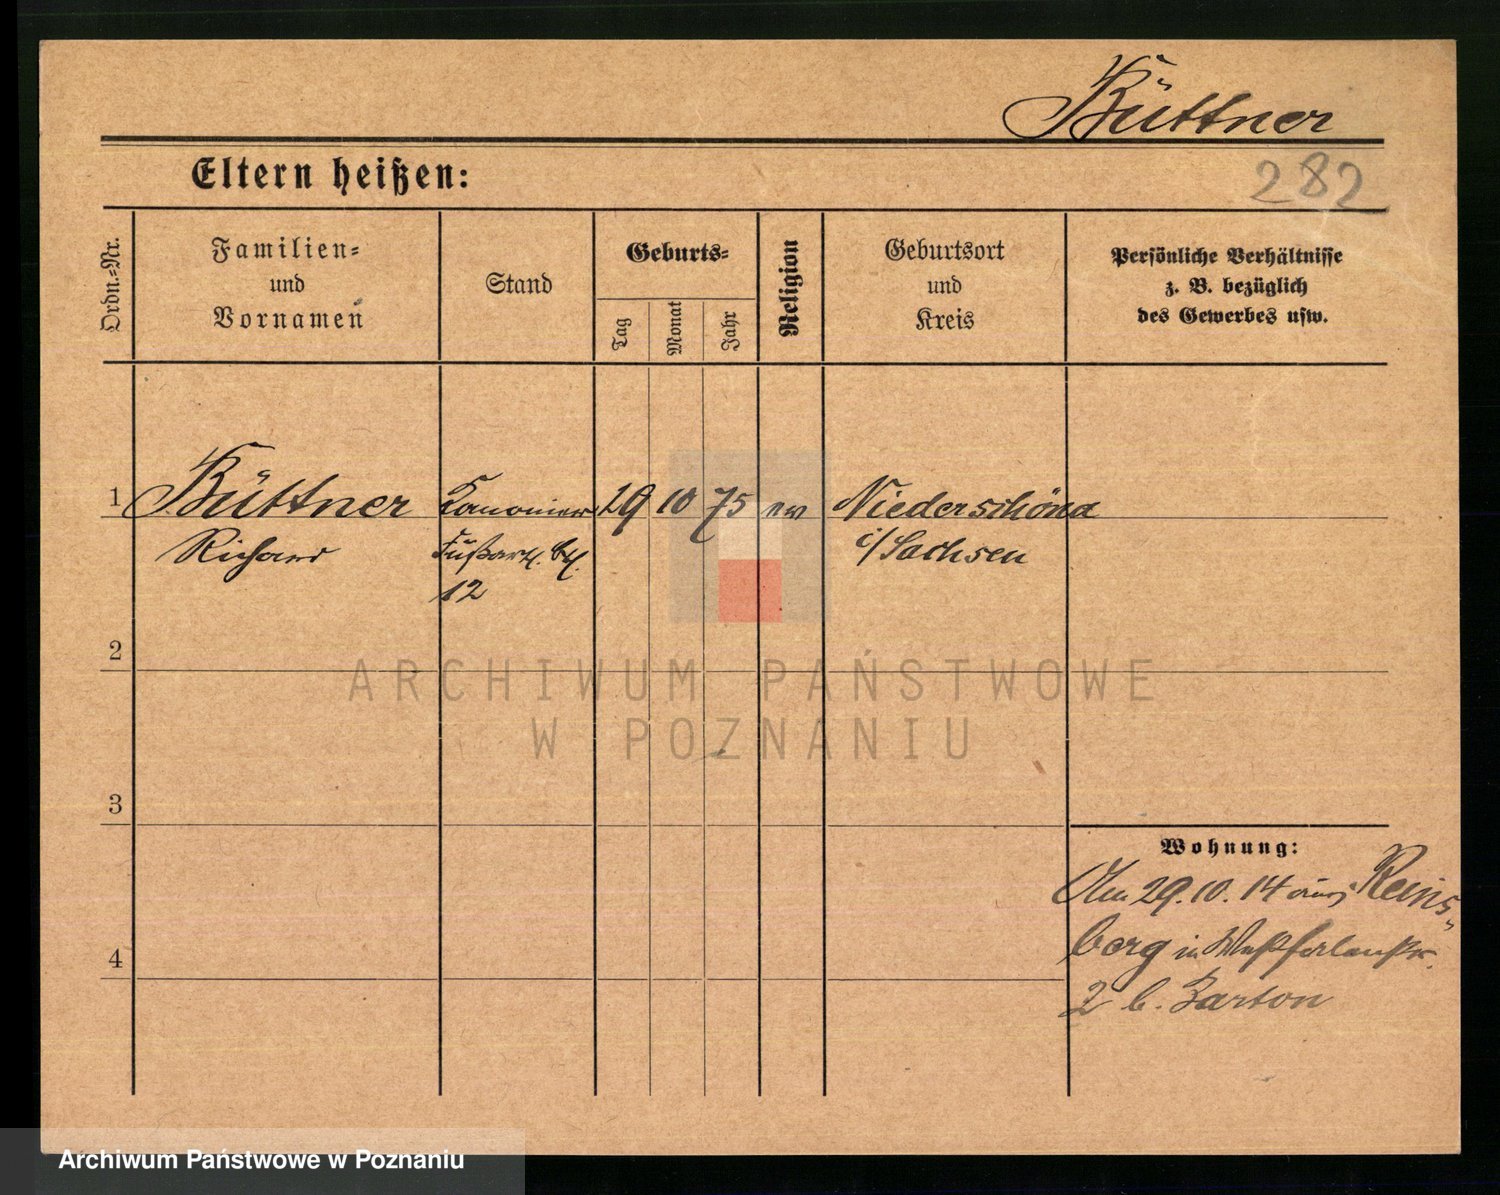 Büttner
282
Eltern heißen:
Ordn.-Nr.
Familien-
und
Vornamen
Stand
Geburts-
Tag
Monat
Jahr
Religion
Geburtsort
und
Kreis
Persönliche Verhältnisse
z. B. bezüglich
des Gewerbes usw.
1 Büttner Kanonier 29 10 75 ev Niederschöna
Richard Fußart. Btl. i/Sachsen
12
2
ARCHIWUM PAŃSTWOWE
W POZNANIU
3
Wohnung:
Am 29.10.14 aus Reins-
berg in
4
2 b. Barton
Archiwum Państwowe w Poznaniu